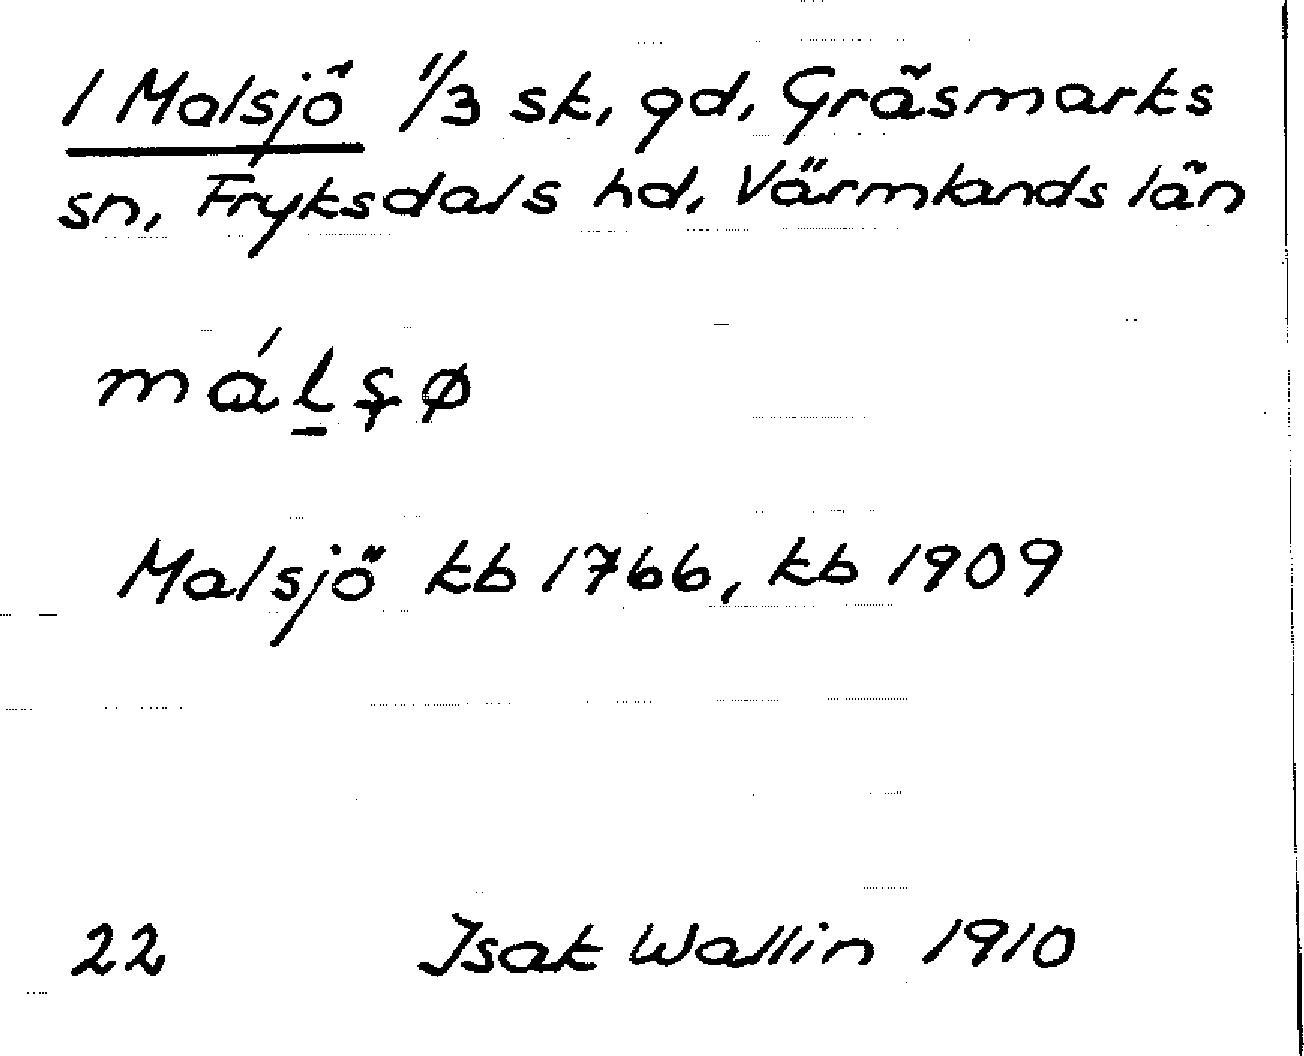 1 Malsjö 1/3 sk, gd, Gräsmarks
sn, Fryksdals hd, Värmlands län
máḻȿø
Malsjö kb 1766, kb 1909
22 Isak Wallin 1910